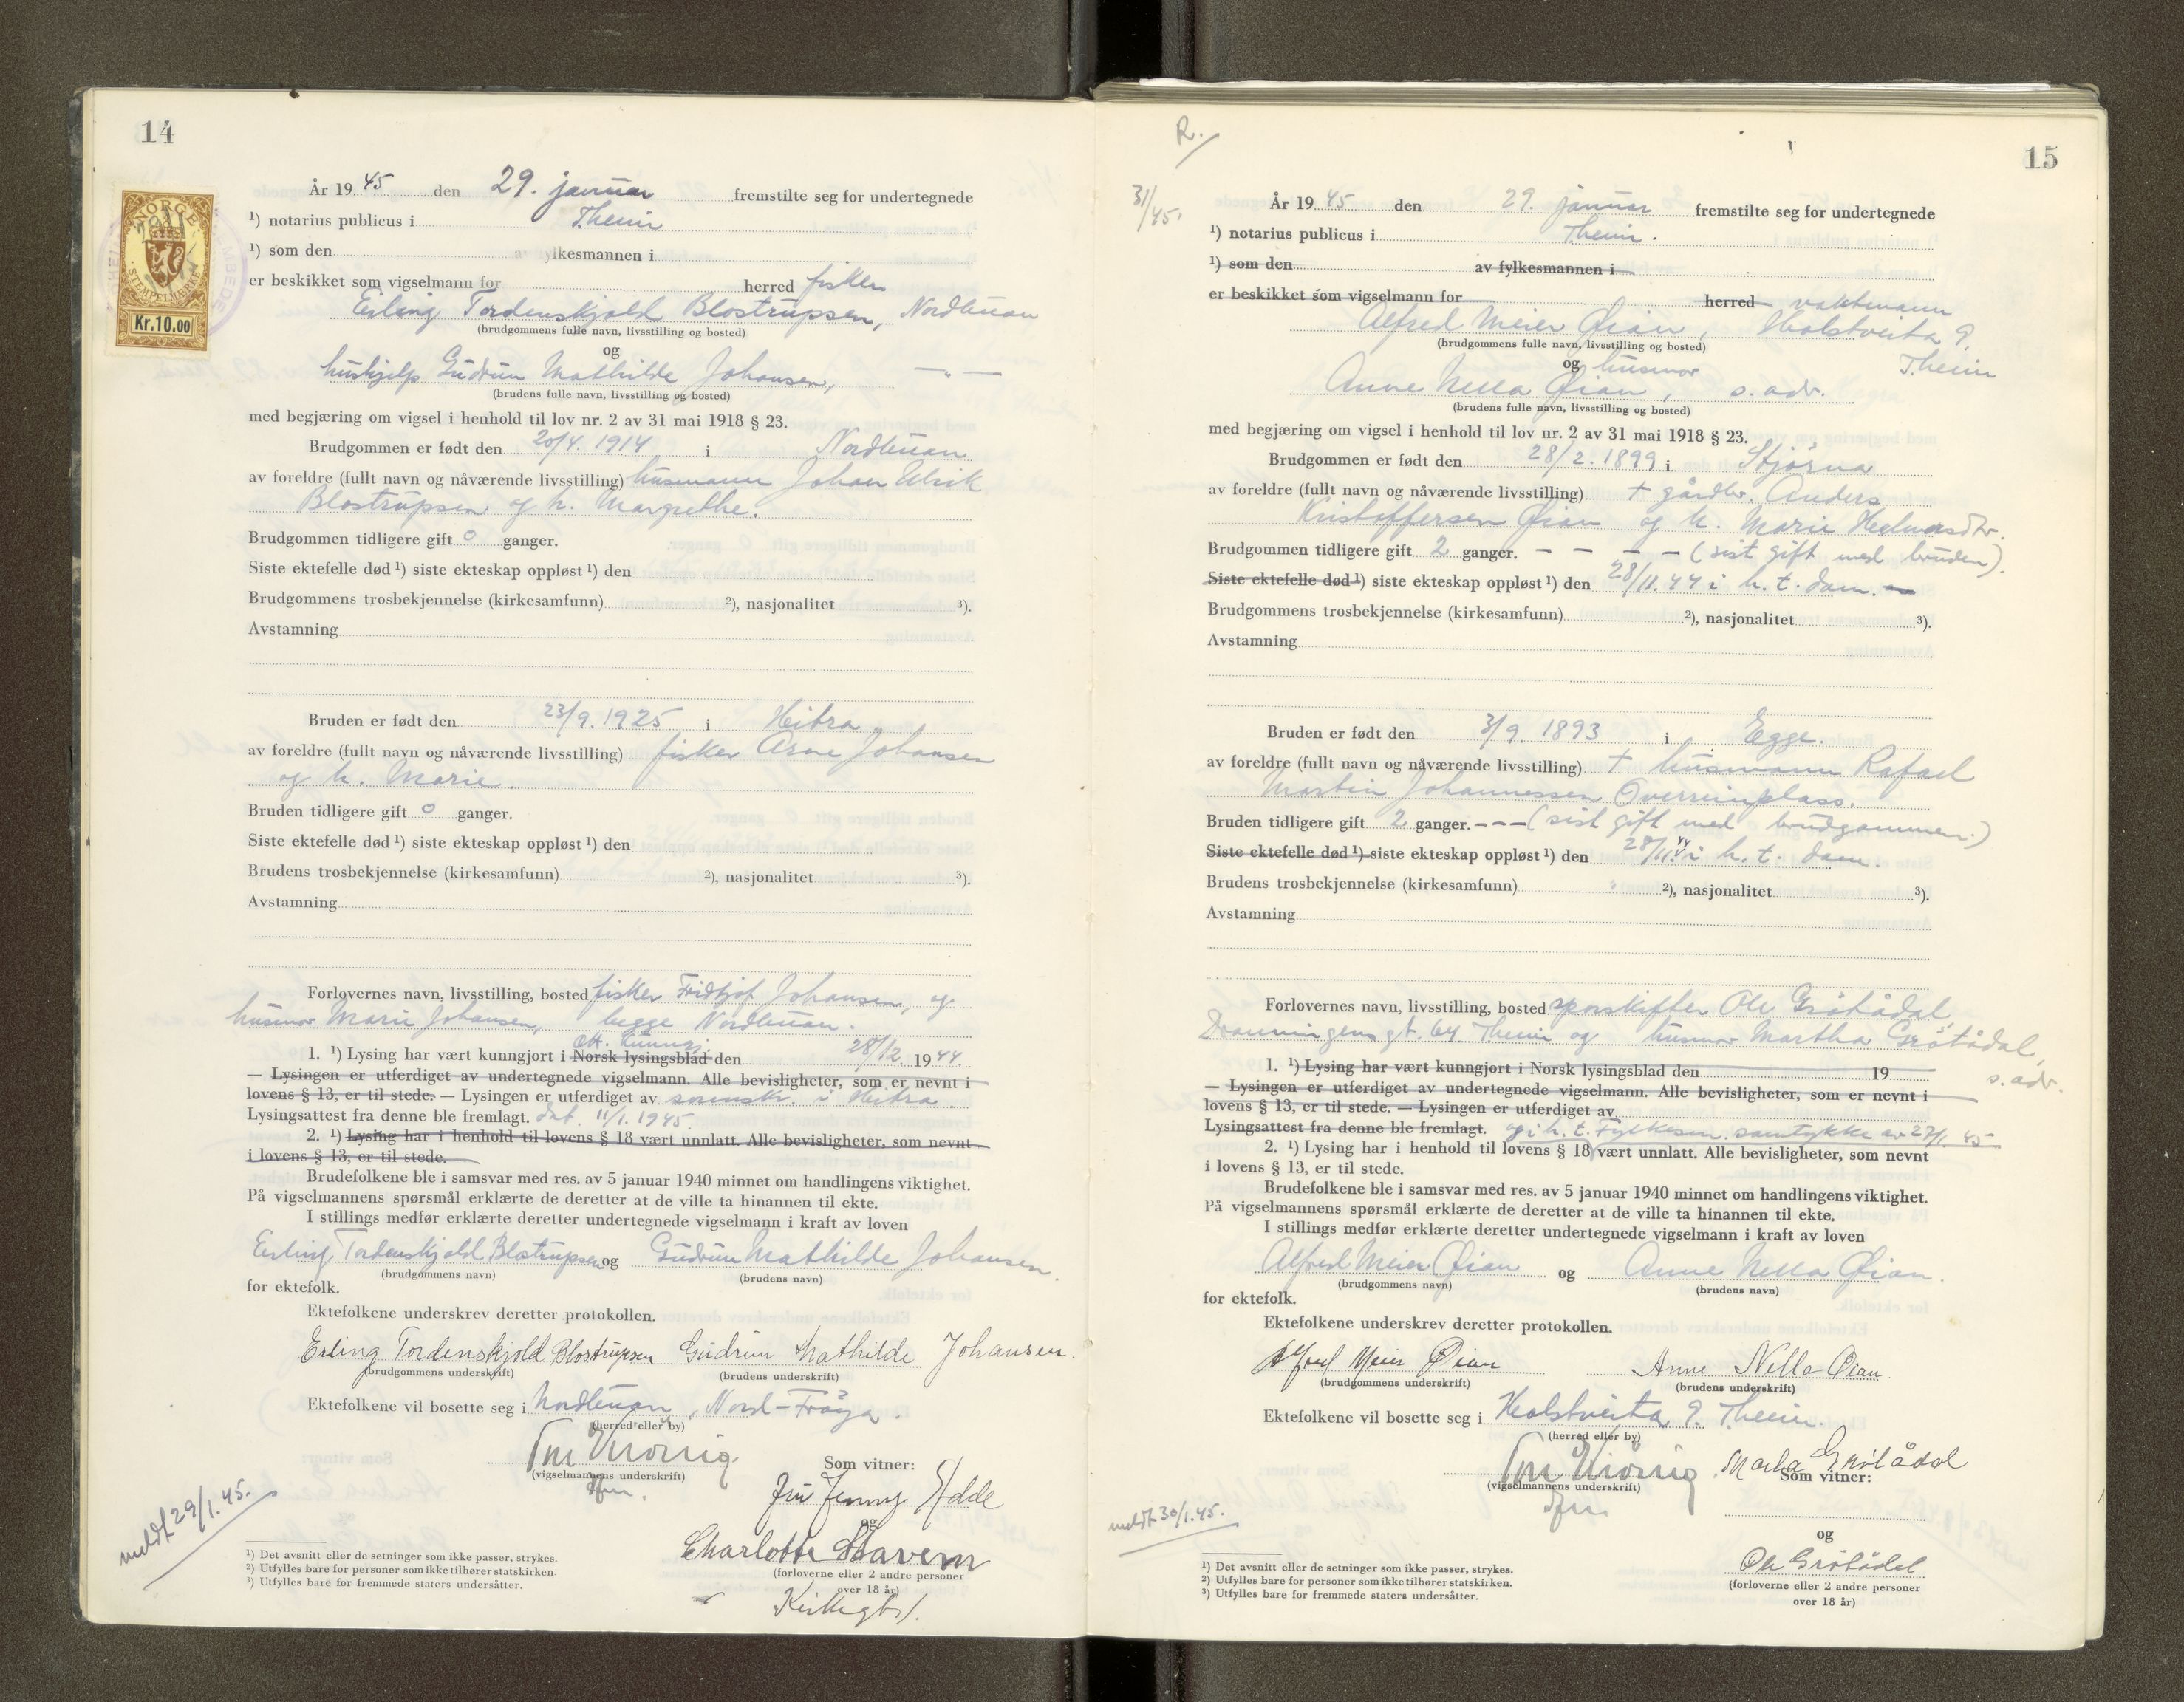 14
NORGE
29/1
STEMPELMERKE
Kr.10.00
År 1945 den 29. januar fremstilte seg for undertegnede
¹) notarius publicus i T.heim
¹) som den av fylkesmannen i
er beskikket som vigselmann for herred fisker
Erling Tordenskjold Blostrupsen, Nordleuan
(brudgommens fulle navn, livsstilling og bosted)
og
hushjelp Gudrun Mathilde Johansen, — " —
(brudens fulle navn, livsstilling og bosted)
med begjæring om vigsel i henhold til lov nr. 2 av 31 mai 1918 § 23.
Brudgommen er født den 20/4. 1914 i Nordleuan
av foreldre (fullt navn og nåværende livsstilling) husmann Johan Ulrik
Blostrupsen og h. Margrethe.
Brudgommen tidligere gift 0 ganger.
Siste ektefelle død ¹) siste ekteskap oppløst ¹) den
Brudgommens trosbekjennelse (kirkesamfunn) ²), nasjonalitet ³).
Avstamning
Bruden er født den 23/9. 1925 i Hitra
av foreldre (fullt navn og nåværende livsstilling) fisker Arne Johansen
og h. Marie.
Bruden tidligere gift 0 ganger.
Siste ektefelle død ¹) siste ekteskap oppløst ¹) den
Brudens trosbekjennelse (kirkesamfunn) ²), nasjonalitet ³).
Avstamning
Forlovernes navn, livsstilling, bosted fisker Fridtjof Johansen, og
husmor Marie Johansen, begge Nordleuan.
off. kunngj.
1. ¹) Lysing har vært kunngjort i Norsk lysingsblad den 28/12. 1944.
— Lysingen er utferdiget av undertegnede vigselmann. Alle bevisligheter, som er nevnt i
lovens § 13, er til stede. — Lysingen er utferdiget av sorenskr. i Hitra.
Lysingsattest fra denne ble fremlagt. dat. 11/1. 1945.
2. ¹) Lysing har i henhold til lovens § 18 vært unnlatt. Alle bevisligheter, som nevnt
i lovens § 13, er til stede.
Brudefolkene ble i samsvar med res. av 5 januar 1940 minnet om handlingens viktighet.
På vigselmannens spørsmål erklærte de deretter at de ville ta hinannen til ekte.
I stillings medfør erklærte deretter undertegnede vigselmann i kraft av loven
Erling Tordenskjold Blostrupsen og Gudrun Mathilde Johansen.
(brudgommens navn) (brudens navn)
for ektefolk.
Ektefolkene underskrev deretter protokollen.
Erling Tordenskjold Blostrupsen Gudrun Mathilde Johansen.
(brudgommens underskrift) (brudens underskrift)
Ektefolkene vil bosette seg i Nordleuan, Nord-Frøya.
(herred eller by)
(vigselmannens underskrift)
Som vitner:
Jenny
og
Charlotte Stavern
(forloverne eller 2 andre personer
over 18 år)
meldt 29/1. 45.
¹) Det avsnitt eller de setninger som ikke passer, strykes.
²) Utfylles bare for personer som ikke tilhører statskirken.
³) Utfylles bare for fremmede staters undersåtter.
R.
15
31/45.
År 1945 den 29. januar fremstilte seg for undertegnede
¹) notarius publicus i T.heim.
¹) som den av fylkesmannen i
er beskikket som vigselmann for herred vaktmann
Alfred Meier Øian, Holstveita 9,
(brudgommens fulle navn, livsstilling og bosted)
T.heim
og husmor
Anne Nella Øian, s. adr.
(brudens fulle navn, livsstilling og bosted)
med begjæring om vigsel i henhold til lov nr. 2 av 31 mai 1918 § 23.
Brudgommen er født den 28/2. 1899 i Stjørna
av foreldre (fullt navn og nåværende livsstilling) + gårdbr. Anders
Kristoffersen Øian og h. Marie
Brudgommen tidligere gift 2 ganger. — — — — (sist gift med bruden).
Siste ektefelle død ¹) siste ekteskap oppløst ¹) den 28/11. 44 i h. t. dom.
Brudgommens trosbekjennelse (kirkesamfunn) ²), nasjonalitet ³).
Avstamning
Bruden er født den 3/9. 1893 i Egge.
av foreldre (fullt navn og nåværende livsstilling) + husmann Rafael
Martin Johannessen Overreinplass.
Bruden tidligere gift 2 ganger. — — — (sist gift med brudgommen.)
Siste ektefelle død ¹) siste ekteskap oppløst ¹) den 28/11. 44 i h. t. dom.
Brudens trosbekjennelse (kirkesamfunn) ²), nasjonalitet ³).
Avstamning
Forlovernes navn, livsstilling, bosted sporskifter Ole Grötådal,
Dronningens gt. 64 T.heim og husmor Martha Grötådal,
s. adr.
1. ¹) Lysing har vært kunngjort i Norsk lysingsblad den 19
— Lysingen er utferdiget av undertegnede vigselmann. Alle bevisligheter, som er nevnt i
lovens § 13, er til stede. — Lysingen er utferdiget av
Lysingsattest fra denne ble fremlagt. og i h. t. Fylkesm. samtykke av 27/1. 45
2. ¹) Lysing har i henhold til lovens § 18 vært unnlatt. Alle bevisligheter, som nevnt
i lovens § 13, er til stede.
Brudefolkene ble i samsvar med res. av 5 januar 1940 minnet om handlingens viktighet.
På vigselmannens spørsmål erklærte de deretter at de ville ta hinannen til ekte.
I stillings medfør erklærte deretter undertegnede vigselmann i kraft av loven
Alfred Meier Øian og Anne Nella Øian.
(brudgommens navn) (brudens navn)
for ektefolk.
Ektefolkene underskrev deretter protokollen.
Alfred Meier Øian Anne Nella Øian
(brudgommens underskrift) (brudens underskrift)
Ektefolkene vil bosette seg i Holstveita 9. T.heim.
(herred eller by)
(vigselmannens underskrift)
Marta Grötådal
Som vitner:
og
Ole Grötådal
(forloverne eller 2 andre personer
over 18 år)
meldt 30/1. 45.
¹) Det avsnitt eller de setninger som ikke passer, strykes.
²) Utfylles bare for personer som ikke tilhører statskirken.
³) Utfylles bare for fremmede staters undersåtter.